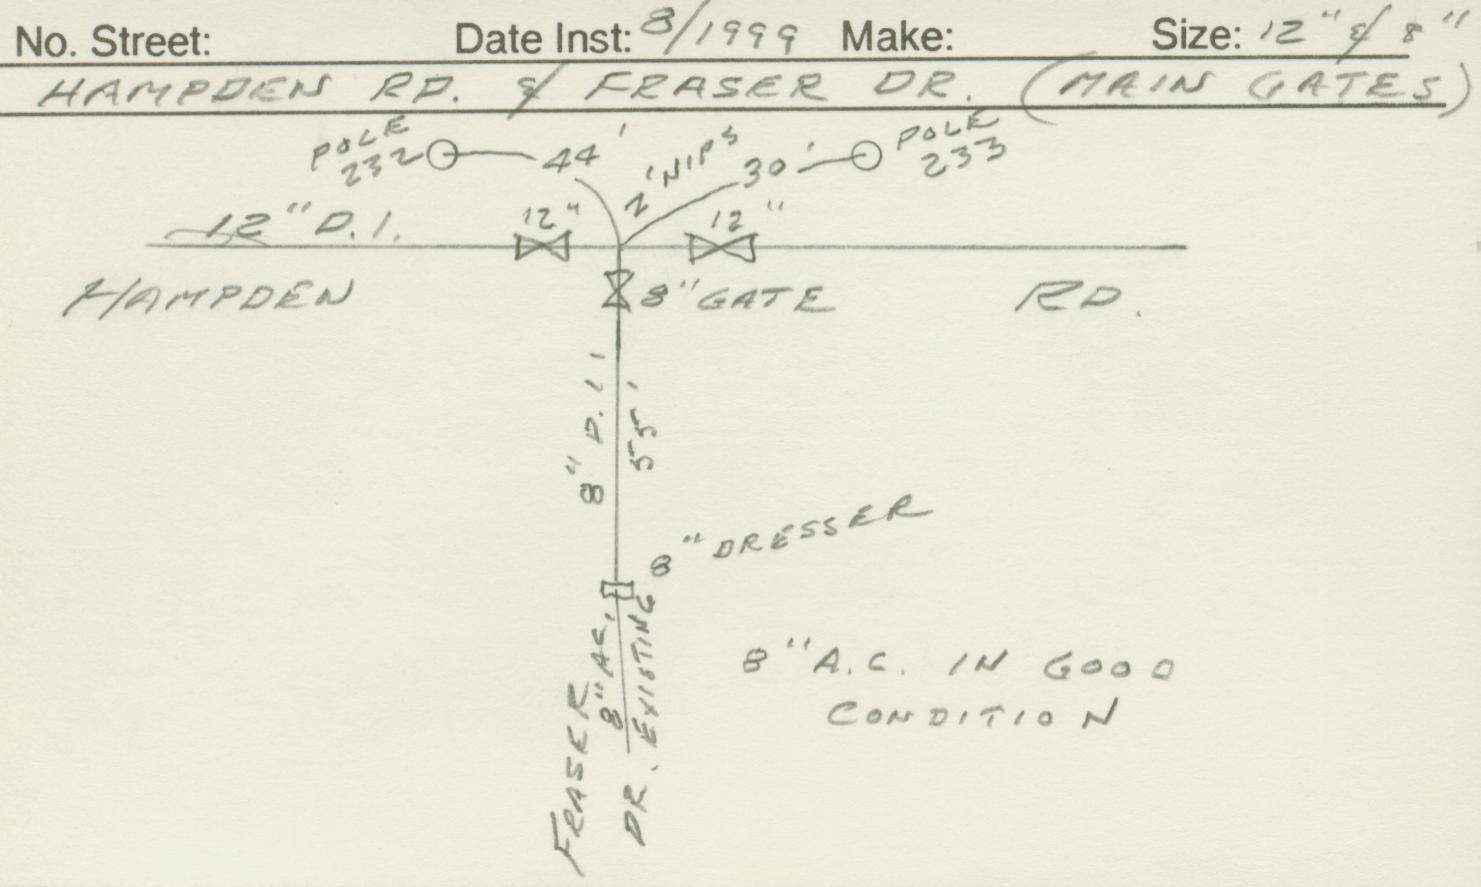 No. Street: Date Inst: 8/1999 Make: Size: 12" & 8"
HAMPDEN RD. & FRASER DR. (MAIN GATES)
POLE
232
44'
2 'NIPS
30'
POLE
233
12" D.I.
12"
12"
HAMPDEN
8" GATE
RD.
8" D.I.
55'
8" DRESSER
8" AC.
EXISTING
FRASER
DR.
8" A.C. IN GOOD
CONDITION